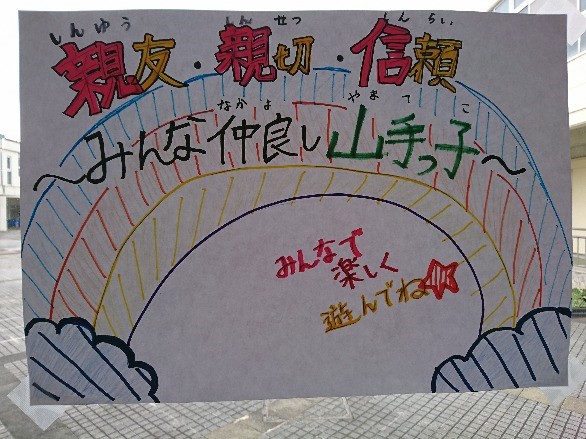 しんゆう しんせつ しんらい
親友・親切・信頼
なかよ やまて こ
〜みんな仲良し山手っ子〜
みんなで
楽しく
遊んでね